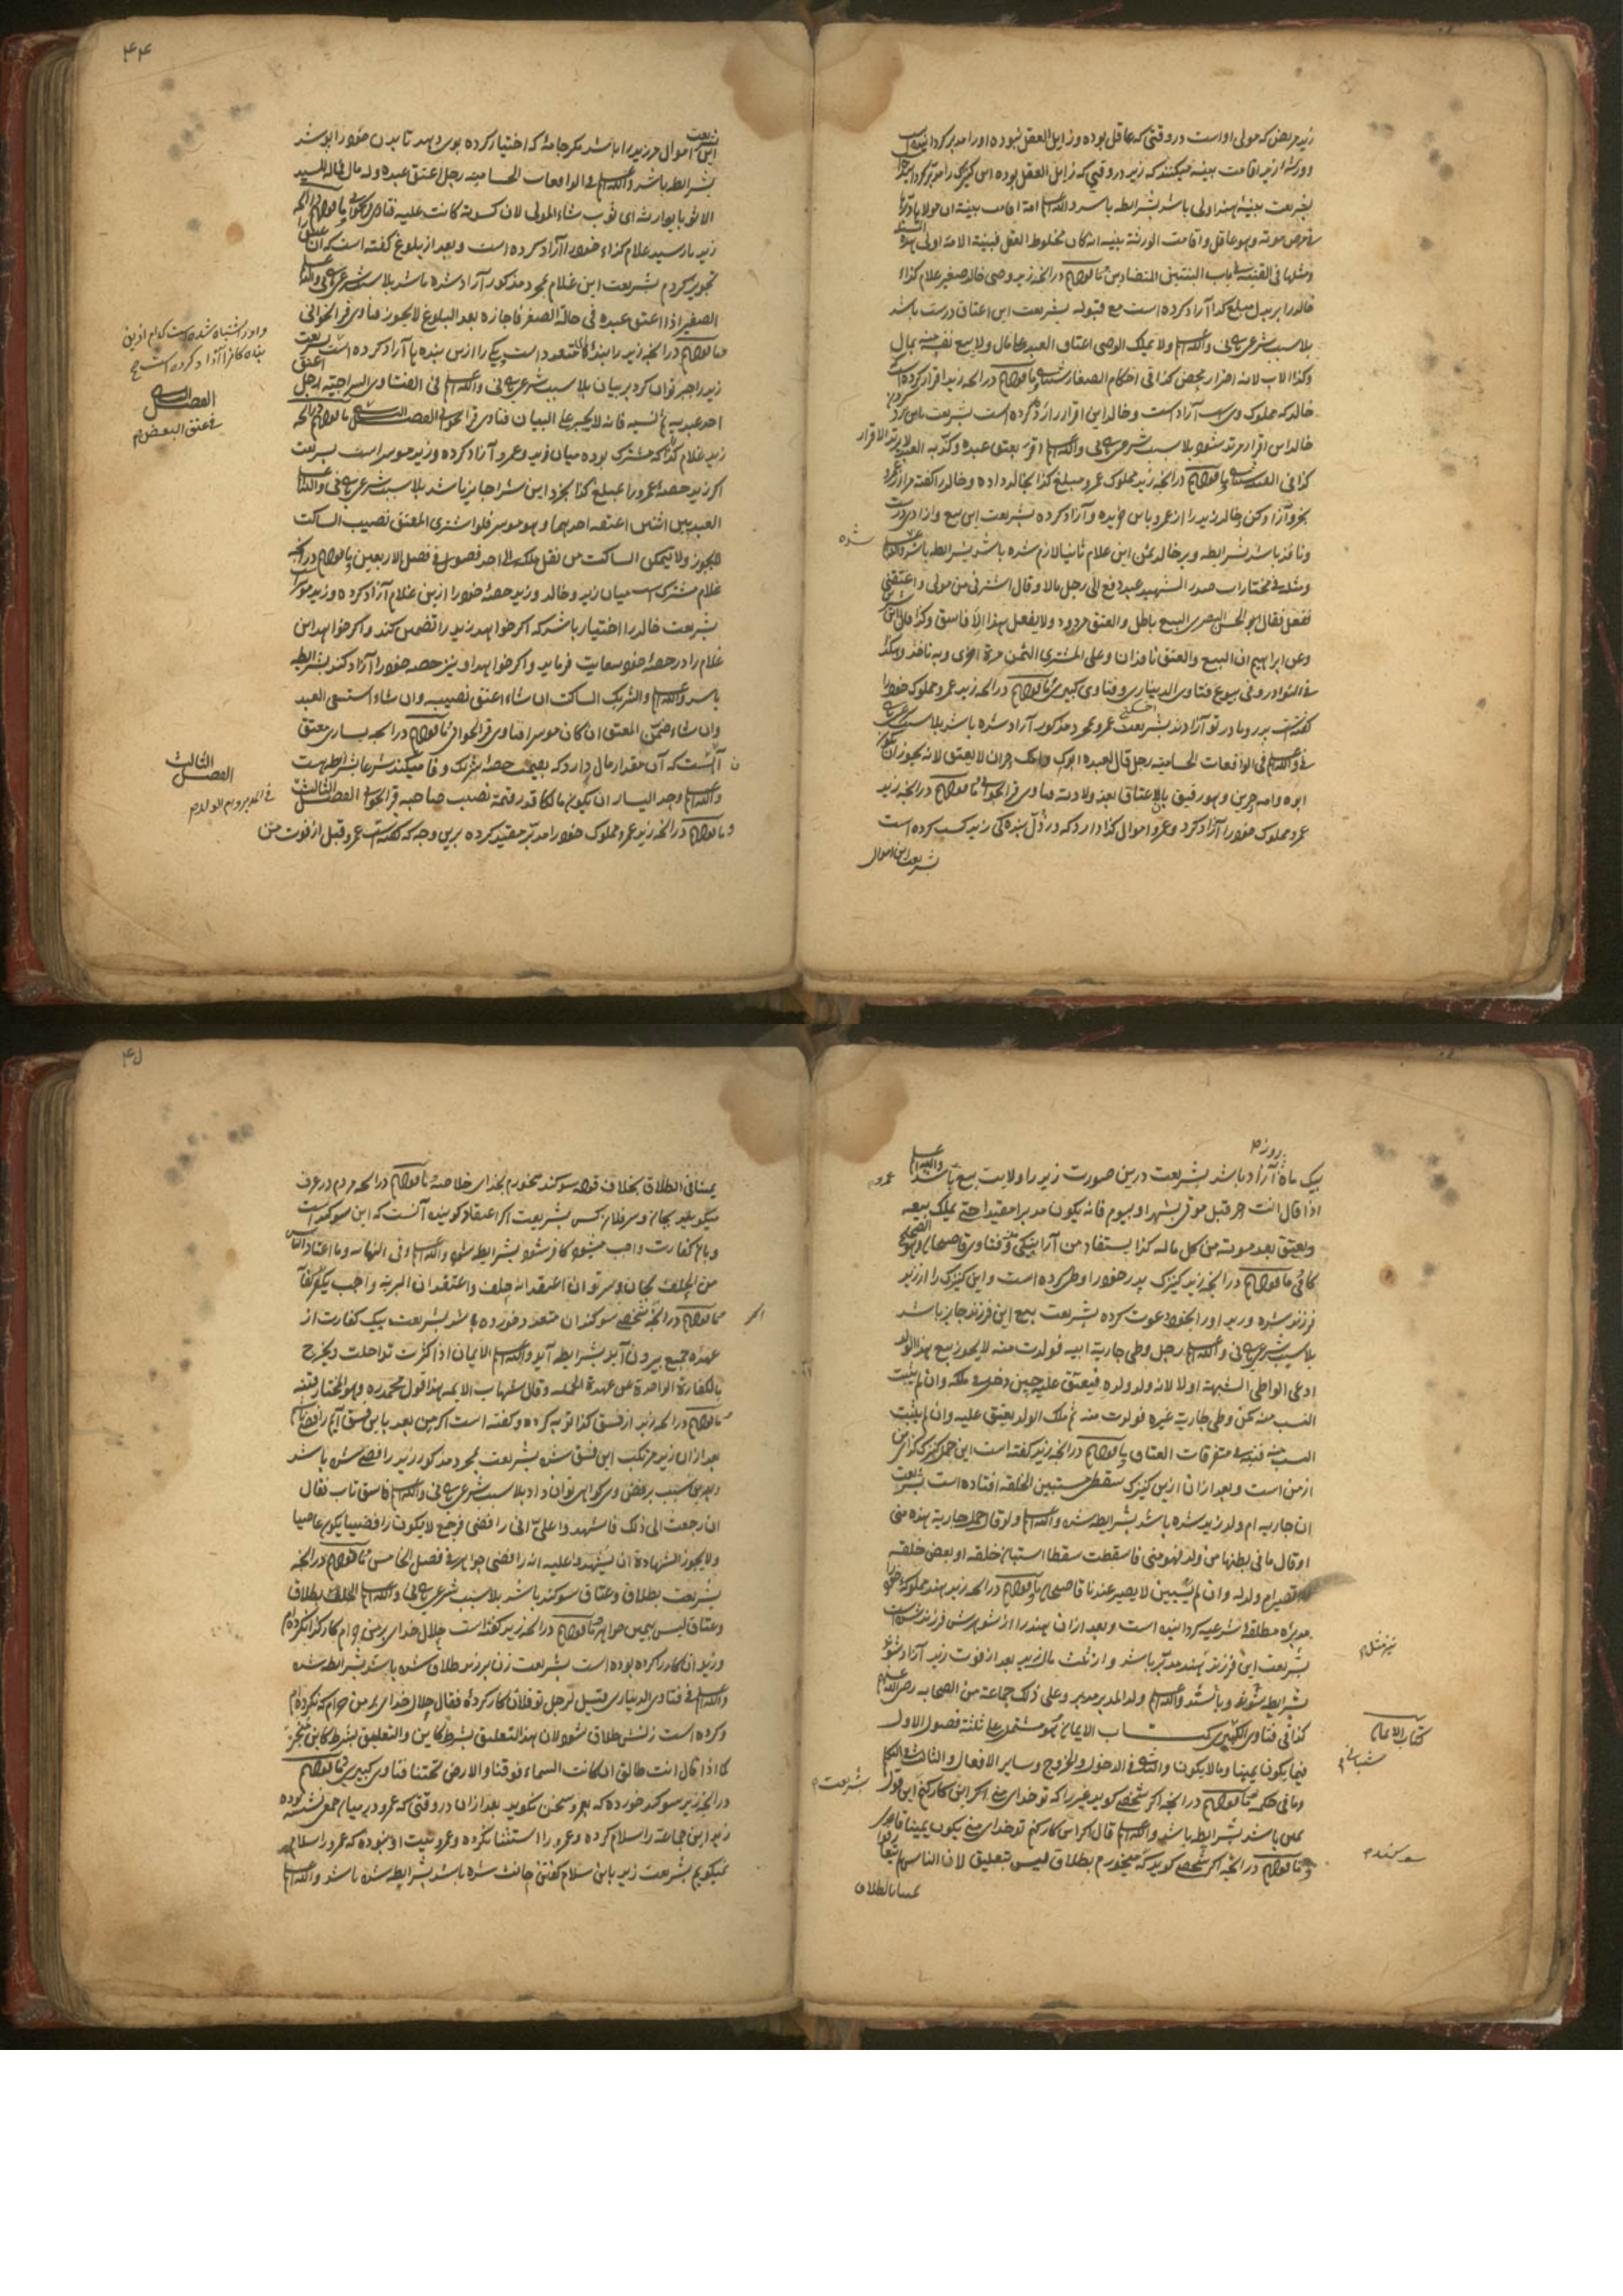 زید مریض که مولی او است در وقتی که عاقل بوده و زایل العقل نبوده او را مدبر کردانیده است
و ورثهٔ زید اقامت بینه میکنند که زید در وقتی که زایل العقل بوده این کنیزک را مدبر کردانیده
بشریعت بینهٔ هند اولی باشد بشرایطه باشد والله اعلم امة اقامت بینة ان مولاها دبرها
فی مرض موته وهو عاقل واقامت الورثة بینة انه کان مخلوط العقل فبینة الامة اولی
ومثلها فی القنیة فی باب البینتین المتضادین ما قولهم در آنکه زید وصی خالد صغیر غلام کذا
خالد را بر بدل مبلغ کذا آزاد کرده است مع قبوله بشریعت این اعتاق درست باشد
بلا سبب شرعی یا نی والله اعلم ولا یملک الوصی اعتاق العبد علی مال ولا بیع نفسه منه بمال
وکذا الاب لانه اضرار محض کذا فی احکام الصغار ما قولهم در آنکه زید اقرار کرده
خالد که مملوک وی است آزاد است و خالد این اقرار را رد کرده است بشریعت باین رد
خالد این اقرار مرتد شود بلا سبب شرعی یا نی والله اعلم اقر بعتق عبده وکذبه العبد لا یرتد الاقرار
کذا فی ما قولهم در آنکه زید مملوک عمرو مبلغ کذا بخالد داده و خالد را گفته مرا از عمرو
بخر و آزاد کن و خالد زید را از عمرو باین خریده و آزاد کرده بشریعت این بیع و آزادی درست
و نافذ باشد بشرایطه و بر خالد ثمن این غلام ثانیا لازم شده باشد بشرایطه باشد والله اعلم
شده
ومثله فی مختارات صدر الشهید عبد دفع الی رجل مالا وقال اشترنی من مولی واعتقنی
ففعل فقال ابو الحسن البصری البیع باطل والعتق مردود ولا یفعل هذا الا فاسق وکذا
وعن ابراهیم ان البیع والعتق نافذان وعلی المشتری الثمن مرة اخری وبه ناخذ
فی النوادر وفی بیوع فتاوی الدیناری وفتاوی کبیری ما قولهم در آنکه زید عمرو مملوک خود را
گفته است پدر و مادر تو آزادند بشریعت عمرو بمجرد مذکور آزاد شده باشد بلا سبب شرعی
نی والله اعلم فی الواقعات الحسامیة رجل قال لعبده ابوک وامک حران لا یعتق لانه یجوز ان یکون
ابوه وامه حرین وهو رقیق بالاعتاق بعد ولادته فتاوی قراخوانی ما قولهم در آنکه زید
عمرو مملوک خود را آزاد کرد و عمرو اموال کذا دارد که در ذل بندهٔ کی زید کسب کرده است
بشریعت این اموال
۴۴
این اموال مر زید را باشد مکر جامهٔ که اختیار کرده بوی دهد تا بدن خود را پوشد
بشرایطه باشد والله اعلم فی الواقعات الحسامیة رجل اعتق عبده وله مال فماله للسید
الا ثوبا یواریه ای ثوب شاء المولی لان کسوته کانت علیه ما قولهم در آنکه
زید نارسید غلام کذاء خود را آزاد کرده است و بعد از بلوغ گفته است که آن
تجویز کردم بشریعت این غلام بمجرد مذکور آزاد شده باشد بلا سبب شرعی یا نی والله اعلم
الصغیر اذا اعتق عبده فی حالة الصغر فاجازه بعد البلوغ لا یجوز فتاوی قراخوانی
ما قولهم در آنکه زید را بندهٔ کان متعدد است یکی را ازین بنده‌ها آزاد کرده است بشریعت
و او را اشتباه شده است کدام ازین
بنده‌کان را آزاد کرده است
زید را جبر توان کرد بر بیان بلا سبب شرعی یا نی والله اعلم فی الفتاوی السراجیة رجل اعتق
احد عبدیه ثم نسیه فانه لا یجبر علی البیان فتاوی قراخوانی الفصل الثانی ما قولهم در آنکه
الفصل الثانی
فی عتق البعض
زید غلام کذا که مشترک بوده میان زید و عمرو آزاد کرده و زید موسر است بشریعت
اکر زید حصهٔ عمرو را بمبلغ کذا بخرد این شرا جایز باشد بلا سبب شرعی یا نی والله اعلم
العبد بین اثنین اعتقه احدهما وهو موسر فلو اشتری المعتق نصیب الساکت
لم یجوز ولا یتمکن الساکت من نقل ملکه الی احد فصولین فی فصل الاربعین ما قولهم در آنکه
غلام مشترک است میان زید و خالد و زید حصهٔ خود را ازین غلام آزاد کرده و زید موسر است
بشریعت خالد را اختیار باشد که اکر خواهد زید را تضمین کند و اکر خواهد این
غلام را در حصهٔ خود سعایت فرماید و اکر خواهد او نیز حصه خود را آزاد کند بشرایطه
باشد والله اعلم والشریک الساکت ان شاء اعتق نصیبه وان شاء استسعی العبد
وان شاء ضمن المعتق ان کان موسرا فتاوی قراخوانی ما قولهم در آنکه یساری معتق
آنست که آن مقدار مال دارد که بقیمت حصهٔ شریک وفا میکند شرعا بشرایطه هست
والله اعلم وحد الیسار ان یکون مالکا قدر قیمة نصیب صاحبه قراخوانی الفصل الثالث
الفصل الثالث
فی التدبیر وام الولد
ما قولهم در آنکه زید عمرو مملوک خود را مدبر مقید کرده برین وجه که گفته است عمرو قبل از فوت من
بیک ماه آزاد باشد بشریعت درین صورت زید را ولایت بیع باشد والله اعلم
روز
عمرو
اذا قال انت حر قبل موتی بشهر او بیوم فانه یکون مدبرا مقیدا حتی یملک بیعه
ویعتق بعد موته من کل ماله کذا یستفاد من وفتاوی قاضیخان وهو الصحیح
کافی ما قولهم در آنکه زید کنیزک پدر خود را وطی کرده است و این کنیزک را از زید
فرزند شده و زید او را بخود دعوت کرده بشریعت بیع این فرزند جایز باشد
بلا سبب شرعی یا نی والله اعلم رجل وطی جاریة ابیه فولدت منه لا یجوز بیع هذا الولد
ادعی الواطی الشبهة او لا لانه ولد ولده فیعتق علیه حین دخل فی ملکه وان لم یثبت
النسب منه کمن وطی جاریة غیره فولدت منه ثم ملک الولد یعتق علیه وان لم یثبت
النسب منه قنیة فی متفرقات العتاق ما قولهم در آنکه زید گفته است این حمل کنیزک
از من است و بعد از آن ازین کنیزک سقطی مستبین الخلقه افتاده است بشریعت
آن جاریه ام ولد زید شده باشد بشرایطه شده والله اعلم ولو قال حمل جاریة هذه منی
او قال ما فی بطنها من ولد فهو منی فاسقطت سقطا استبان خلقه او بعض خلقه
تصیر ام ولد له وان لم یستبین لا یصیر عندنا قاضیخان ما قولهم در آنکه زید هند مملوکهٔ خود را
مدبره مطلقهٔ شرعیه کردانیده است و بعد از آن هند را از شوهرش فرزند شده است
بشریعت این فرزند هند مدبر باشد و از ثلث مال زید بعد از فوت زید آزاد شود
بشرایطه شود والله اعلم ولد المدبر مدبر وعلی ذلک جماعة من الصحابه رضی الله عنهم
کذا فی فتاوی الکبیری کتاب الایمان هو مشتمل علی ثلثة فصول الاول
کتاب الایمان
فیما یکون یمینا وما لا یکون والثانی فی الدخول والخروج وسایر الافعال والثالث
وما فی حکمه ما قولهم در آنکه اکر شخصی کوید غیر را که تو خدای منی اکر این کار کنم این قول
بشریعت
یمین باشد بشرایطه باشد والله اعلم قال اکر این کار کنم تو خدای منی یکون یمینا
ما قولهم در آنکه اکر شخصی کوید که میخورم بطلاق لیس تعلیق لان الناس لم
یمینا بالطلاق
۴۵
یمینا فی الطلاق بخلاف قوله سوکند میخورم بخدای خلاصه ما قولهم در آنکه مردم در عرف
میکویند بجان و سر فلان کس بشریعت اکر اعتقاد کوینده آنست که این سوکند است
و باو کفارت واجب میشود کافر شود بشرایطه شود والله اعلم وفی النهایة وما اعتاد الناس
من الحلف بجان و سر تو ان اعتقد انه حلف واعتقد ان البر به واجب یکفر
ما قولهم در آنکه شخصی سوکندان متعدد خورده باشد بشریعت بیک کفارت از
عهده جمیع بیرون آید بشرایطه آید والله اعلم الایمان اذا کثرت تداخلت ویخرج
بالکفارة الواحدة عن عهدة الجمله وقال شهاب الایمه هذا قول محمد ره وهو المختار قنیه
ما قولهم در آنکه زید از فسق کذا توبه کرده و گفته است اکر من بعد باین فسق آیم رافضی‌ام
بعد از آن زید مرتکب این فسق شده بشریعت بمجرد مذکور زید رافضی شده باشد
و بدین سبب برفض وی کواهی توان داد بلا سبب شرعی یا نی والله اعلم فاسق تاب فقال
ان رجعت الی ذلک فاشهدوا علی انی رافضی فرجع لا یکون رافضیا یکون عاصیا
ولا یجوز الشهادة ان یشهدوا علیه انه رافضی جواهر فی فصل الخامس ما قولهم در آنکه
بشریعت بطلاق و عتاق سوکند باشد بلا سبب شرعی یا نی والله اعلم الحلف بطلاق
وعتاق لیس بیمین جواهر ما قولهم در آنکه زید گفته است حلال خدای بر من حرام کار کذا نکرده‌ام
و زید آن کار را کرده بوده است بشریعت زن بر زید طلاق شده باشد بشرایطه شده
والله اعلم فی فتاوی الدیناری قیل لرجل تو فلان کار کردهٔ فقال حلال خدای بر من حرام که نکرده‌ام
و کرده است زنش طلاق شود لان هذا التعلیق بشرط کاین والتعلیق بشرط کاین تنجیز
کما اذا قال انت طالق ان کانت السماء فوقنا والارض تحتنا فتاوی کبیری ما قولهم
در آنکه زید سوکند خورده که بعمرو سخن نکوید بعد از آن در وقتی که عمرو در میان جمعی نشسته بوده
زید این جماعة را سلام کرده و عمرو را استثنا نکرده و عمرو نیت او نبوده که عمرو را سلام
نمیکویم بشریعت زید باین سلام گفتن حانث شده باشد بشرایطه شده باشد والله اعلم